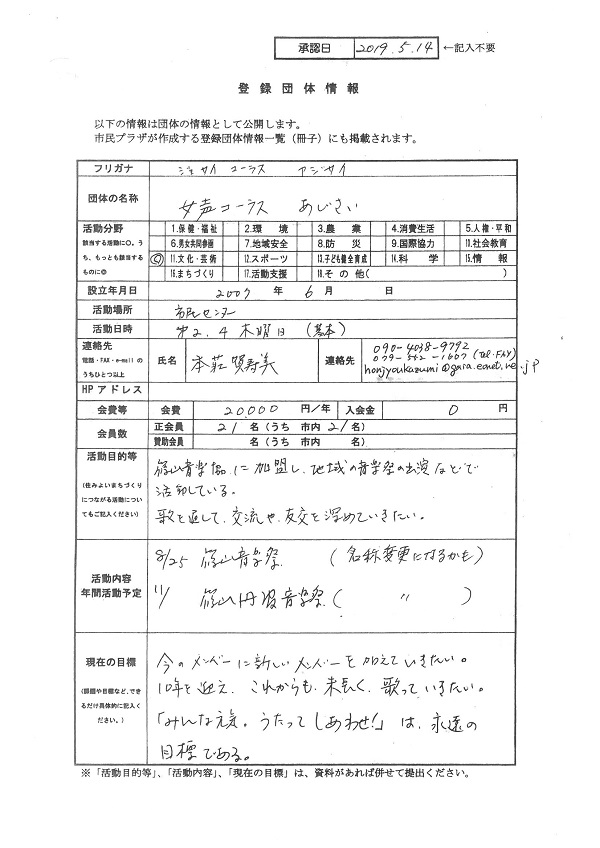 承認日 2019.5.14 ←記入不要
登録団体情報
以下の情報は団体の情報として公開します。
市民プラザが作成する登録団体情報一覧（冊子）にも掲載されます。
フリガナ ジョセイ コーラス アジサイ
団体の名称 女声コーラス あじさい
活動分野 該当する活動に○。うち、もっとも該当するものに◎
1.保健・福祉 2.環境 3.農業 4.消費生活 5.人権・平和
6.男女共同参画 7.地域安全 8.防災 9.国際協力 10.社会教育
◎ 11.文化・芸術 12.スポーツ 13.子ども健全育成 14.科学 15.情報
16.まちづくり 17.活動支援 18.その他( )
設立年月日 2007年 6月 日
活動場所 市民センター
活動日時 第2.4 木曜日 (基本)
連絡先 電話・FAX・e-mailのうちひとつ以上 氏名 本荘賀寿美 連絡先
090-4038-9792
079-562-1607 (Tel・FAX)
HPアドレス
会費等 会費 20,000 円/年 入会金 0 円
会員数 正会員 21 名（うち 市内 21 名）
賛助会員 名（うち 市内 名）
活動目的等
(住みよいまちづくりにつながる活動についてもご記入ください)
篠山音楽協に加盟し、地域の音楽祭の出演などで
活動している。
歌を通して、交流や、友交を深めていきたい。
活動内容
年間活動予定
8/25 篠山音楽祭 (名称変更になるかも)
11/ 篠山丹波音楽祭 ( 〃 )
現在の目標
(課題や目標など、できるだけ具体的に記入ください。)
今のメンバーに新しいメンバーを加えていきたい。
10年を迎え、これからも、末長く、歌っていきたい。
「みんな元気。うたってしあわせ!」は、永遠の
目標である。
※「活動目的等」、「活動内容」、「現在の目標」は、資料があれば併せて提出ください。